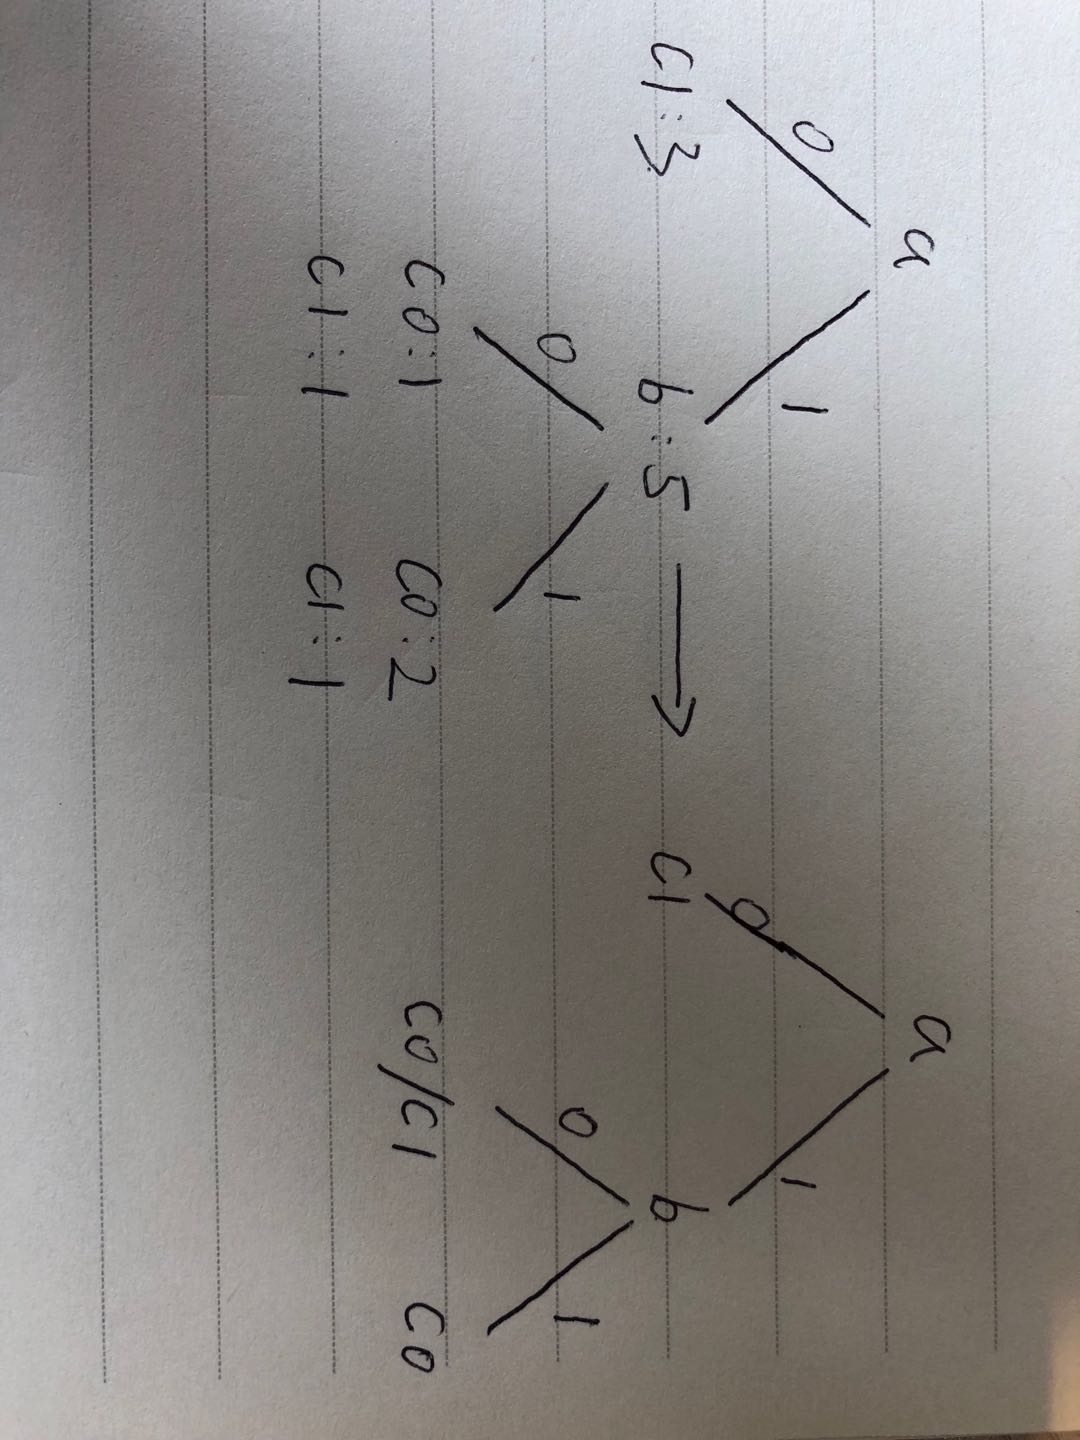 a
0
1
C1:3
b:5
0
1
C0:1
C0:2
C1:1
C1:1
a
0
1
C1
b
0
1
C0/C1
C0